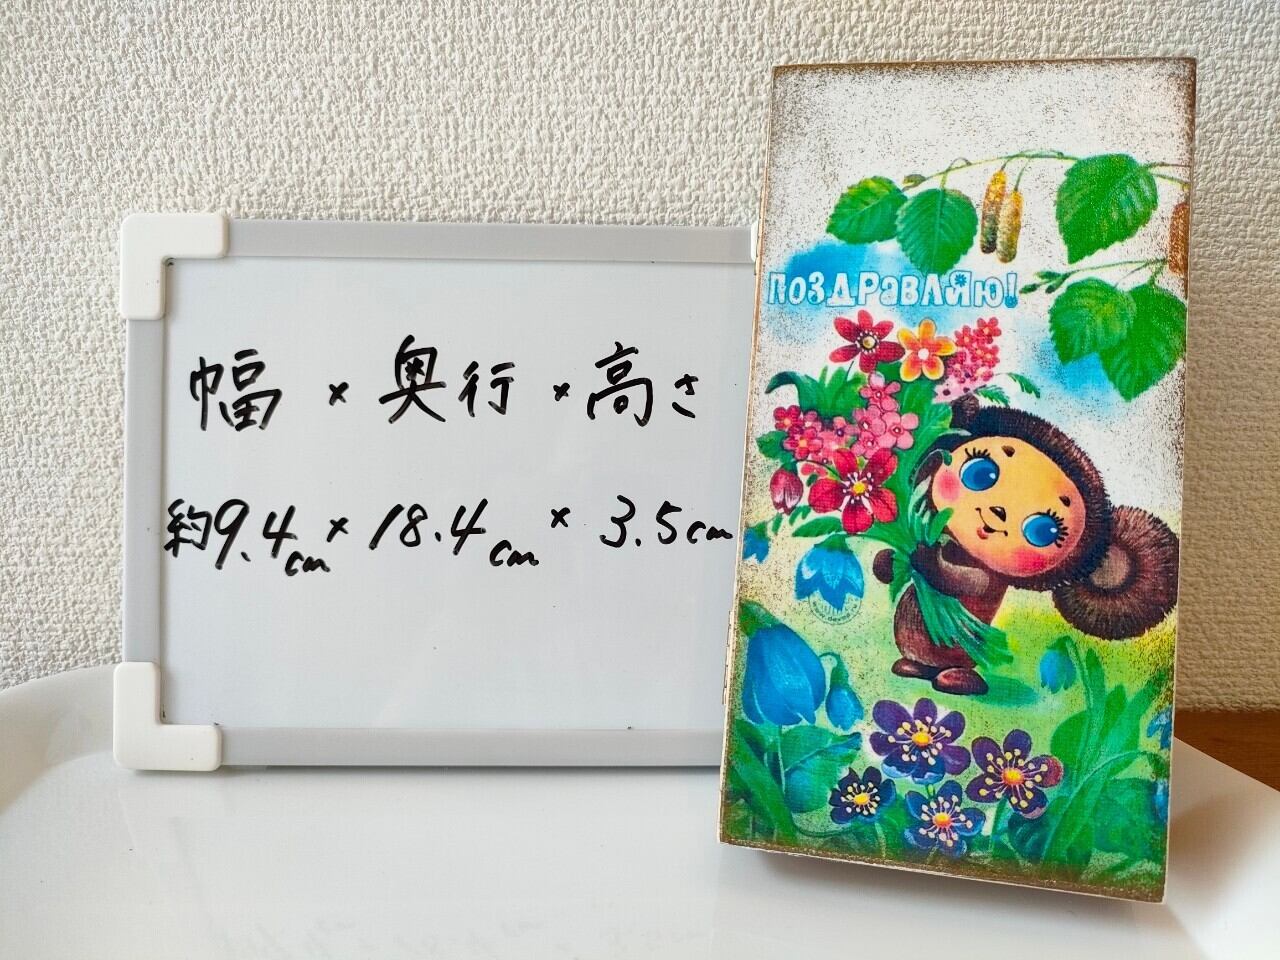 幅 × 奥行 × 高さ
約9.4cm × 18.4cm × 3.5cm
ПОЗДРаВЛЯЮ!